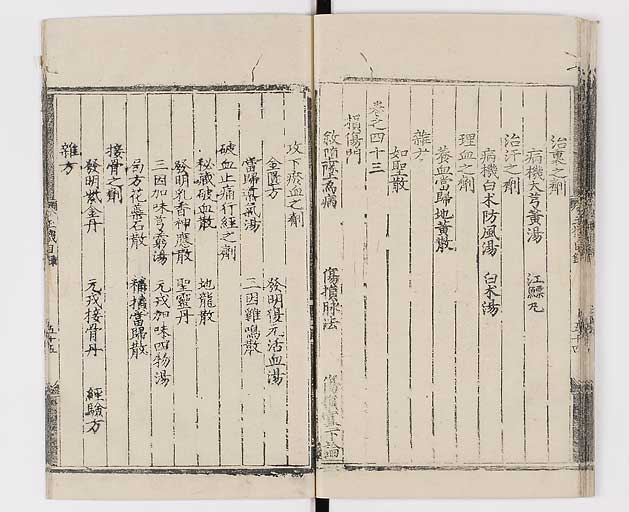 治裏之劑
病機大芎黃湯 江鰾丸
治汗之劑
病機白朮防風湯 白朮湯
理血之劑
養血當歸地黃散
雜方
如聖散
卷之四十三
損傷門
敘隨墮為病 傷損脉法 傷損宜下論
攻下瘀血之劑
金匱方 發明復元活血湯
當歸導氣湯 三因雞鳴散
破血止痛行經之劑
秘藏破血散 地龍散
發明乳香神應散 聖靈丹
三因加味芎藭湯 元戎加味四物湯
局方花蘂石散 補損當歸散
接骨之劑
發明紫金丹 元戎接骨丹 經驗方
雜方